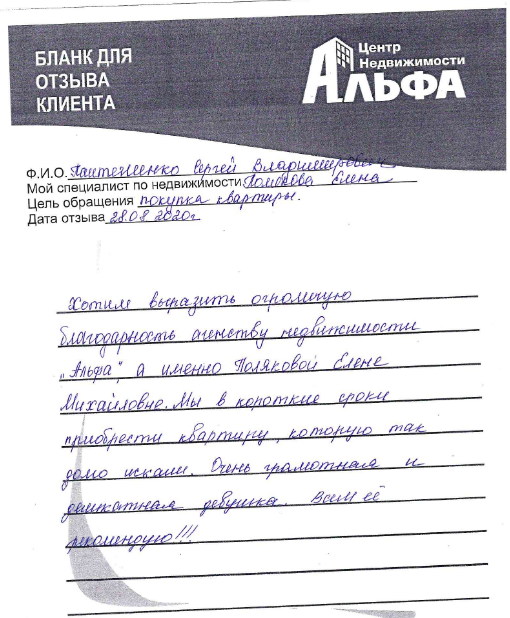 БЛАНК ДЛЯ
ОТЗЫВА
КЛИЕНТА
Центр
Недвижимости
АЛЬФА
Ф.И.О. Пантешенко Сергей Владимирович
Мой специалист по недвижимости Полякова Елена
Цель обращения покупка квартиры.
Дата отзыва 28.08 2020г
Хотим выразить огромную
благодарность агенству недвижимости
„Альфа", а именно Поляковой Елене
Михайловне. Мы в короткие сроки
приобрести квартиру, которую так
домо искали. Очень грамотная и
деликатная девушка. Всем её
рекомендую!!!